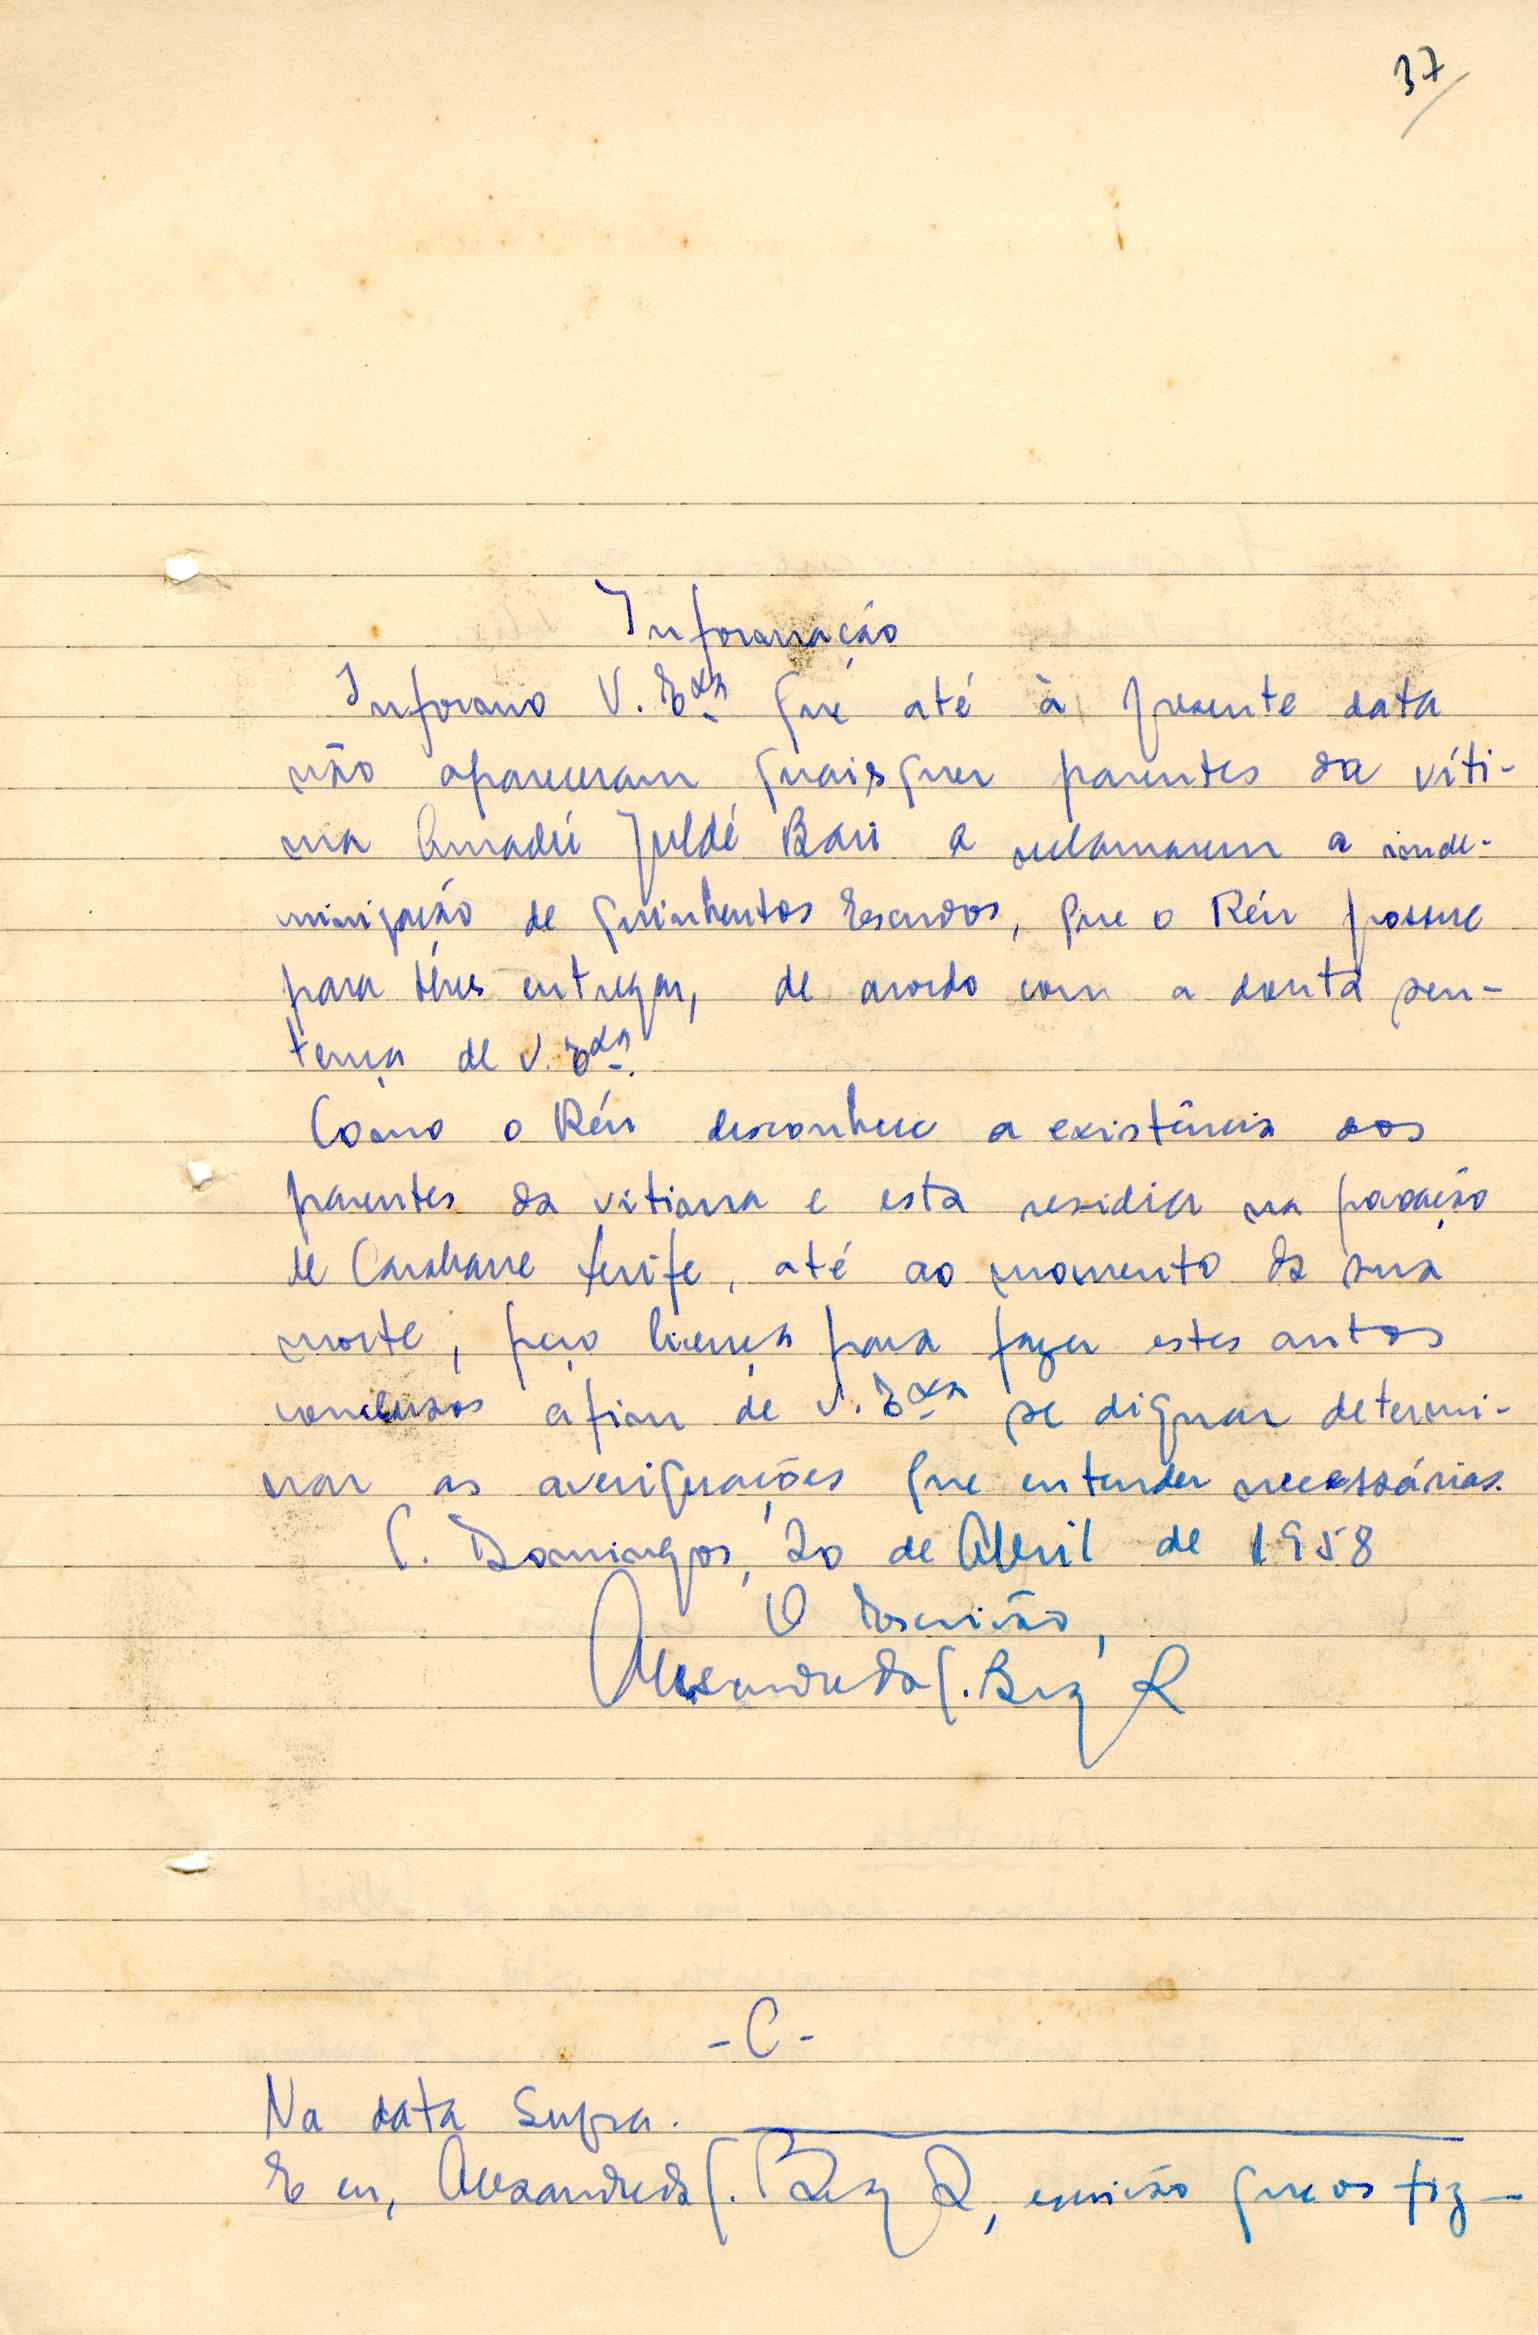 37
Informação
Informo V. Exa que até à presente data
não apareceram quaisquer parentes da víti-
ma Amadú Juldé Bari a reclamarem a inde-
minização de quinhentos Escudos, que o Réu possue
para lhes entregar, de acordo com a douta sen-
tença de V. Exa.
Como o Réu desconhece a existência dos
parentes da vitima e esta residia na povoação
de até ao momento da sua
morte, peço licença para fazer estes autos
conclusos afim de V. Exa se dignar determi-
nar as averiguações que entender necessárias.
C. Domingos, 20 de Abril de 1958
O Escrivão,
Alexandre da C. Braz
- C -
Na data supra.
E eu, Alexandre da C. Braz, escrivão que os fiz